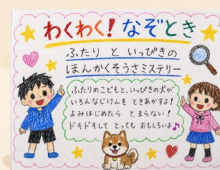 わくわく！なぞとき
ふたり と いっぴきの
ほんかくそうさミステリー
ふたりのこどもと、いっぴきの犬が
いろんなじけんを ときあかすよ！
よみはじめたら とまらない！
ドキドキして とっても おもしろいよ♪